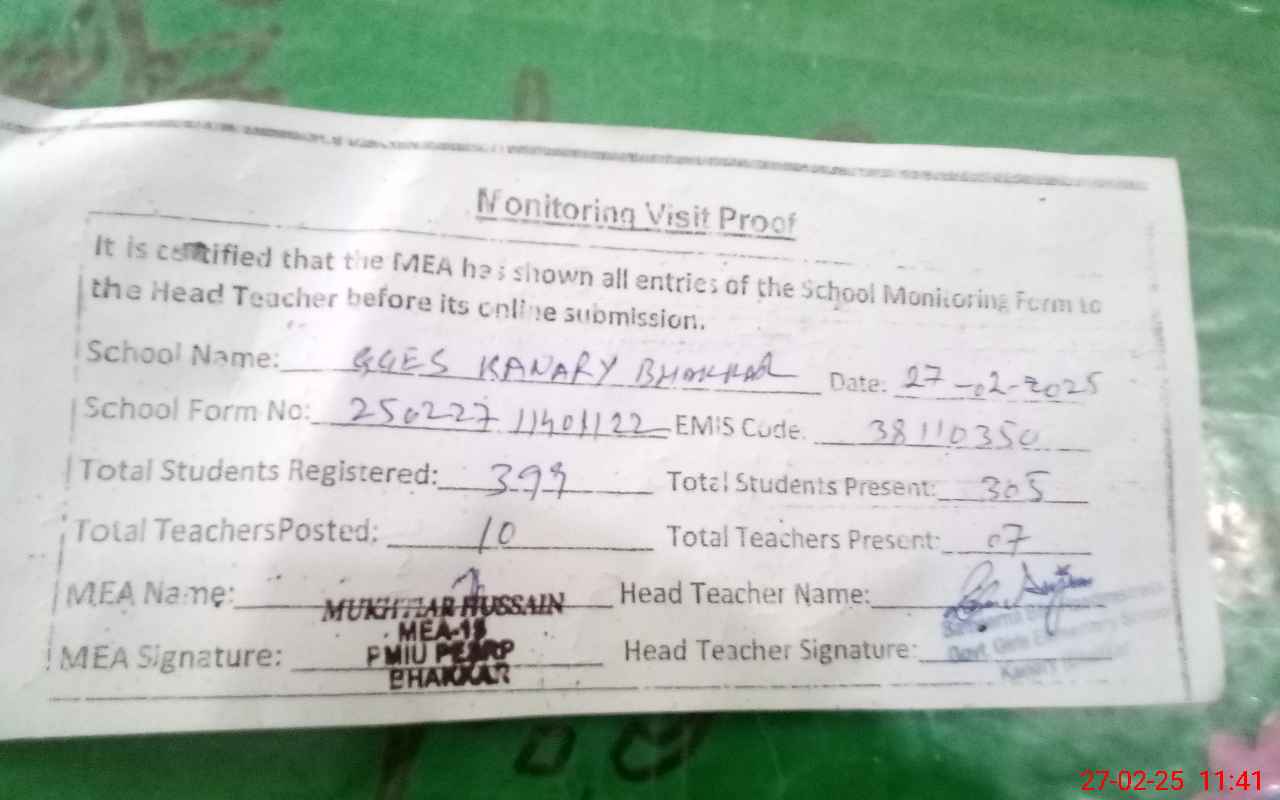 Monitoring Visit Proof
It is certified that the MEA has shown all entries of the School Monitoring Form to
the Head Teacher before its online submission.
School Name: GGES KANARY BHAKKAR Date: 27-02-2025
School Form No: 250227 11401122 EMIS Code. 38110350
Total Students Registered: Total Students Present: 305
Total TeachersPosted: 10 Total Teachers Present: 07
MEA Name: MUKHTIAR HUSSAIN Head Teacher Name:
MEA-18
MEA Signature: PMIU PESRP Head Teacher Signature:
BHAKKAR
Govt. Girls Elementary School
27-02-25 11:41